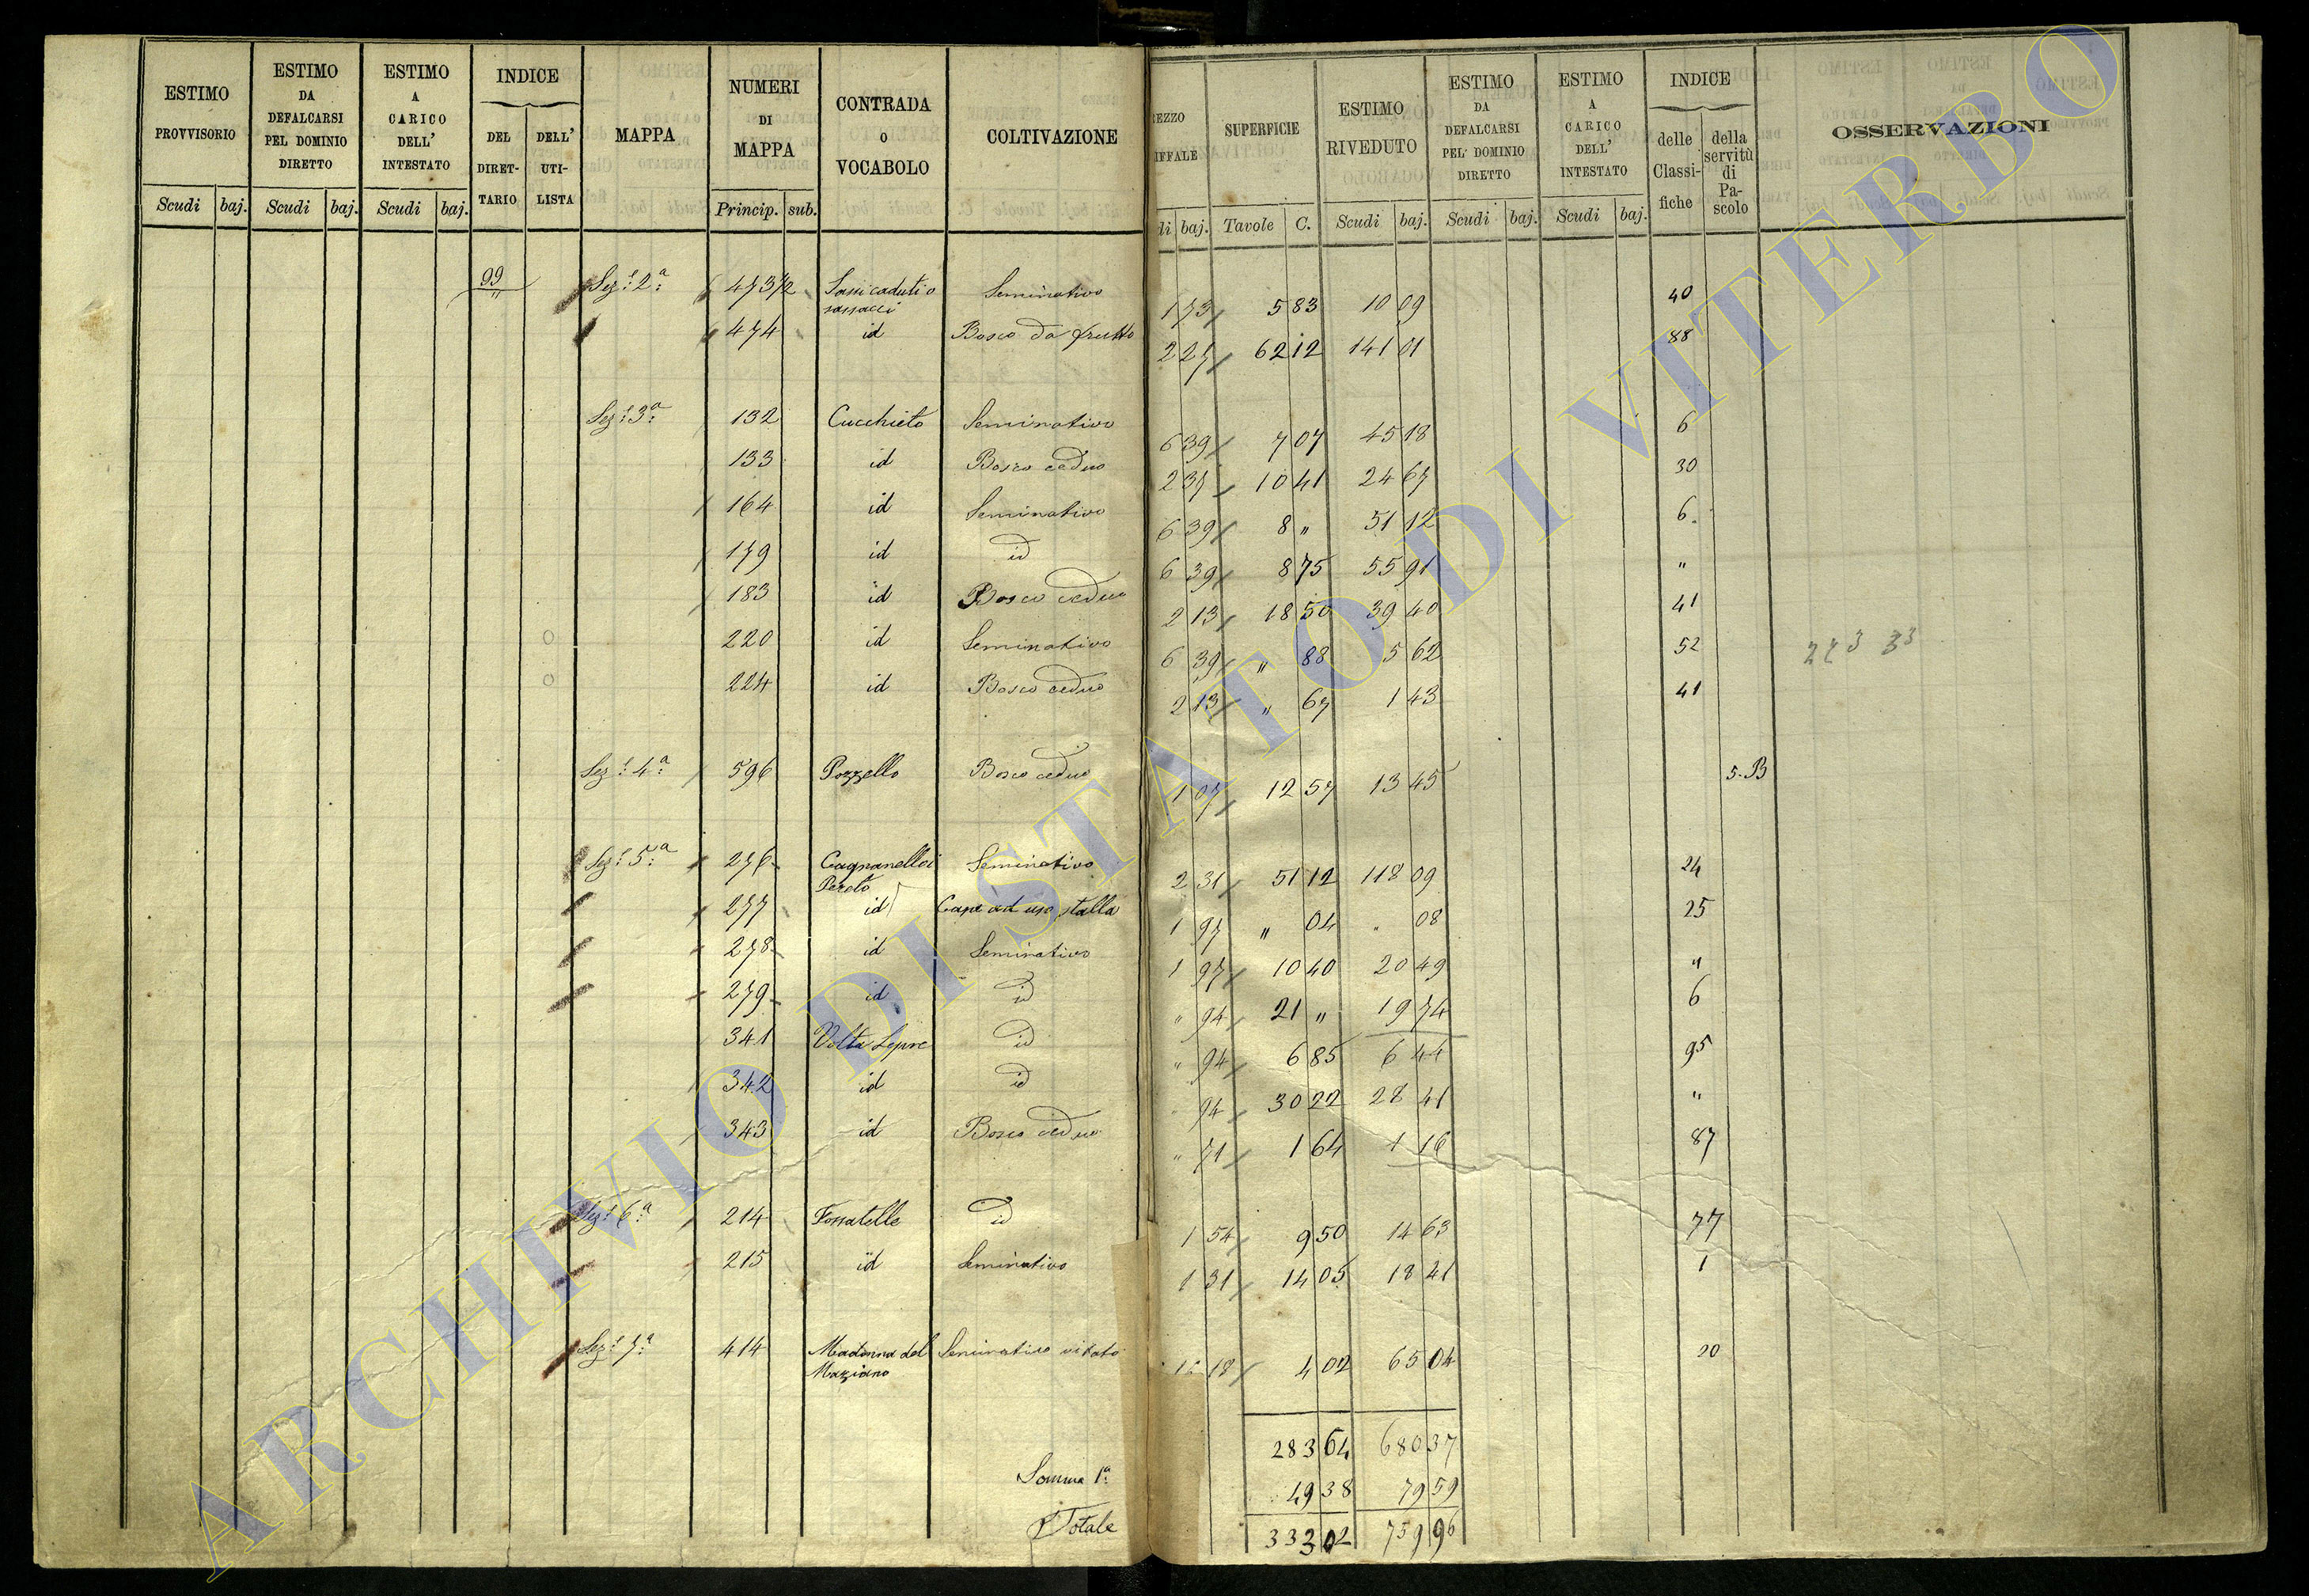 ESTIMO PROVVISORIO | ESTIMO DA DEFALCARSI PEL DOMINIO DIRETTO | ESTIMO A CARICO DELL' INTESTATO | INDICE DEL DIRETTARIO | DELL' UTILISTA | MAPPA | NUMERI DI MAPPA | CONTRADA O VOCABOLO | COLTIVAZIONE | EZZO IFFALE | SUPERFICIE | ESTIMO RIVEDUTO | ESTIMO DA DEFALCARSI PEL DOMINIO DIRETTO | ESTIMO A CARICO DELL' INTESTATO | INDICE delle Classifiche | della servitù di Pascolo | OSSERVAZIONI
Scudi | baj. | Scudi | baj. | Scudi | baj. | Princip. | sub. | di | baj. | Tavole | C. | Scudi | baj. | Scudi | baj. | Scudi | baj.
99 " | Sez.e 2a | 473/2 | Sassicaduti o sassacci | Seminativo | 1 73 | 5 83 | 10 09 | 40
474 | id | Bosco da frutto | 2 27 | 62 12 | 141 01 | 88
Sez.e 3a | 132 | Cucchieto | Seminativo | 6 39 | 7 07 | 45 18 | 6
133 | id | Bosco ceduo | 2 37 | 10 41 | 24 67 | 30
164 | id | Seminativo | 6 39 | 8 " | 51 12 | 6
179 | id | id | 6 39 | 8 75 | 55 91 | "
183 | id | Bosco ceduo | 2 13 | 18 50 | 39 40 | 41
220 | id | Seminativo | 6 39 | " 88 | 5 62 | 52
224 | id | Bosco ceduo | 2 13 | " 67 | 1 43 | 41
Sez.e 4a | 596 | Pozzello | Bosco ceduo | 1 07 | 12 57 | 13 45 | 5.B
Sez.e 5a | 276 | Cagnanello i Pereto | Seminativo | 2 31 | 51 12 | 118 09 | 24
277 | id | Casa ad uso stalla | 1 97 | " 04 | " 08 | 25
278 | id | Seminativo | 1 97 | 10 40 | 20 49 | "
279 | id | id | " 94 | 21 " | 19 74 | 6
341 | Volta Lepre | id | " 94 | 6 85 | 6 44 | 95
342 | id | id | 94 | 30 22 | 28 41 | "
343 | id | Bosco ceduo | " 71 | 1 64 | 1 16 | 87
Sez.e 6a | 214 | Fossatelle | id | 1 54 | 9 50 | 14 63 | 77
215 | id | Seminativo | 1 31 | 14 05 | 18 41 | 1
Sez.e 7a | 414 | Madonna del Maziano | Seminativo vitato | 18 | 4 02 | 65 04 | 20
283 64 | 680 37
Somma 1a | 49 38 | 79 59
Totale | 333 02 | 759 96
ARCHIVIO DI STATO DI VITERBO